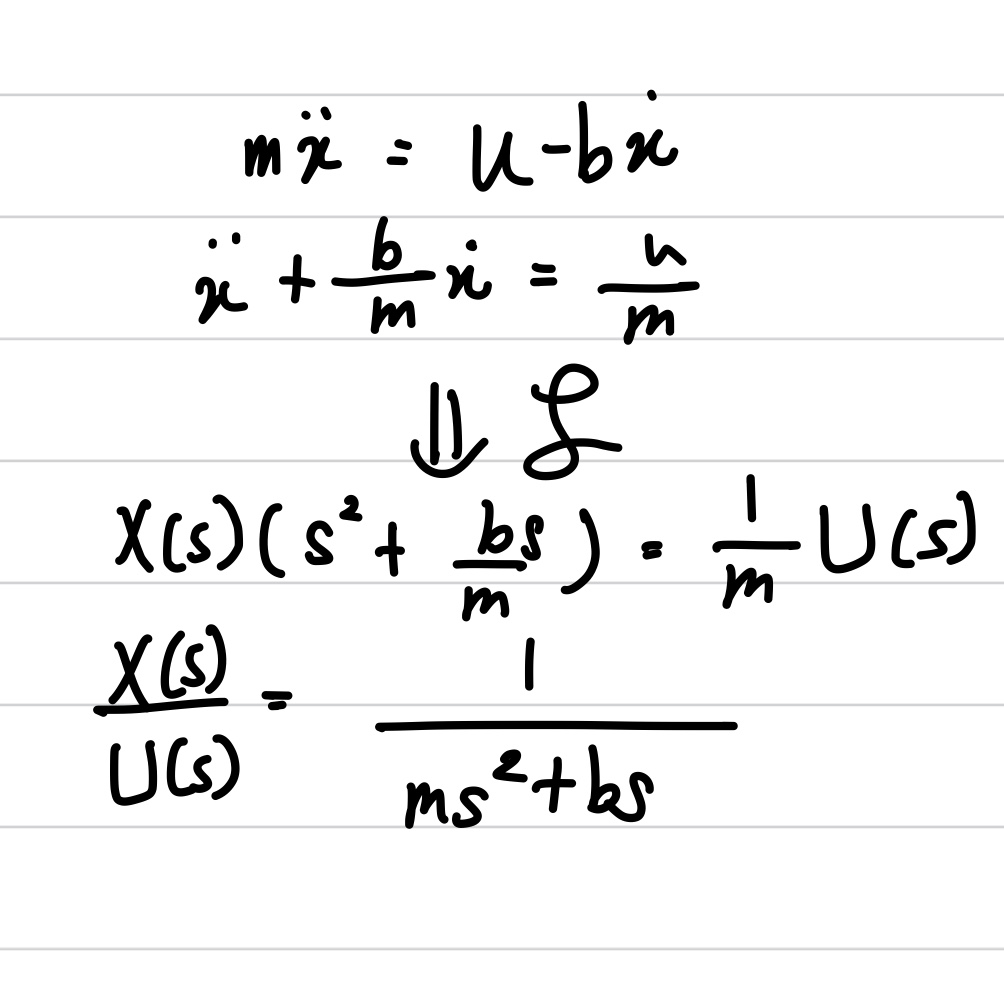 mẍ = u - bẋ
ẍ + b/m ẋ = u/m
⇓ ℒ
X(s)(s² + bs/m) = 1/m U(s)
X(s)/U(s) = 1/(ms² + bs)